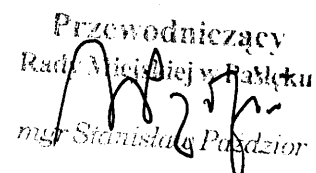 Przewodniczący
Rady Miejskiej w Pasłęku
mgr Stanisław Paździor